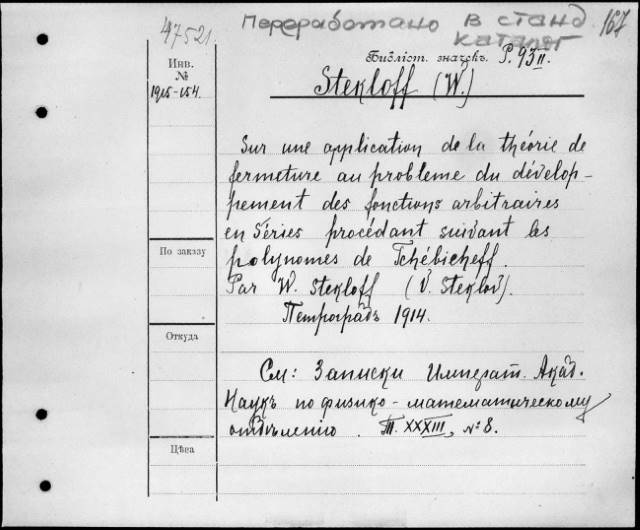 47521
Переработано в станд
каталог
167
Инв.
№
1915-154.
Библіот. значекъ. P. 93 II.
Stekloff (W.)
Sur une application de la théorie de
fermeture au problème du dévelop-
pement des fonctions arbitraires
en Séries procédant suivant les
polynomes de Tchébicheff.
Par W. Stekloff (V. Steklov).
Петроградъ 1914.
По заказу
Откуда
См: Записки Императ. Акад.
Наукъ по физико-математическому
отдѣленію. Т. XXXIII, № 8.
Цѣна